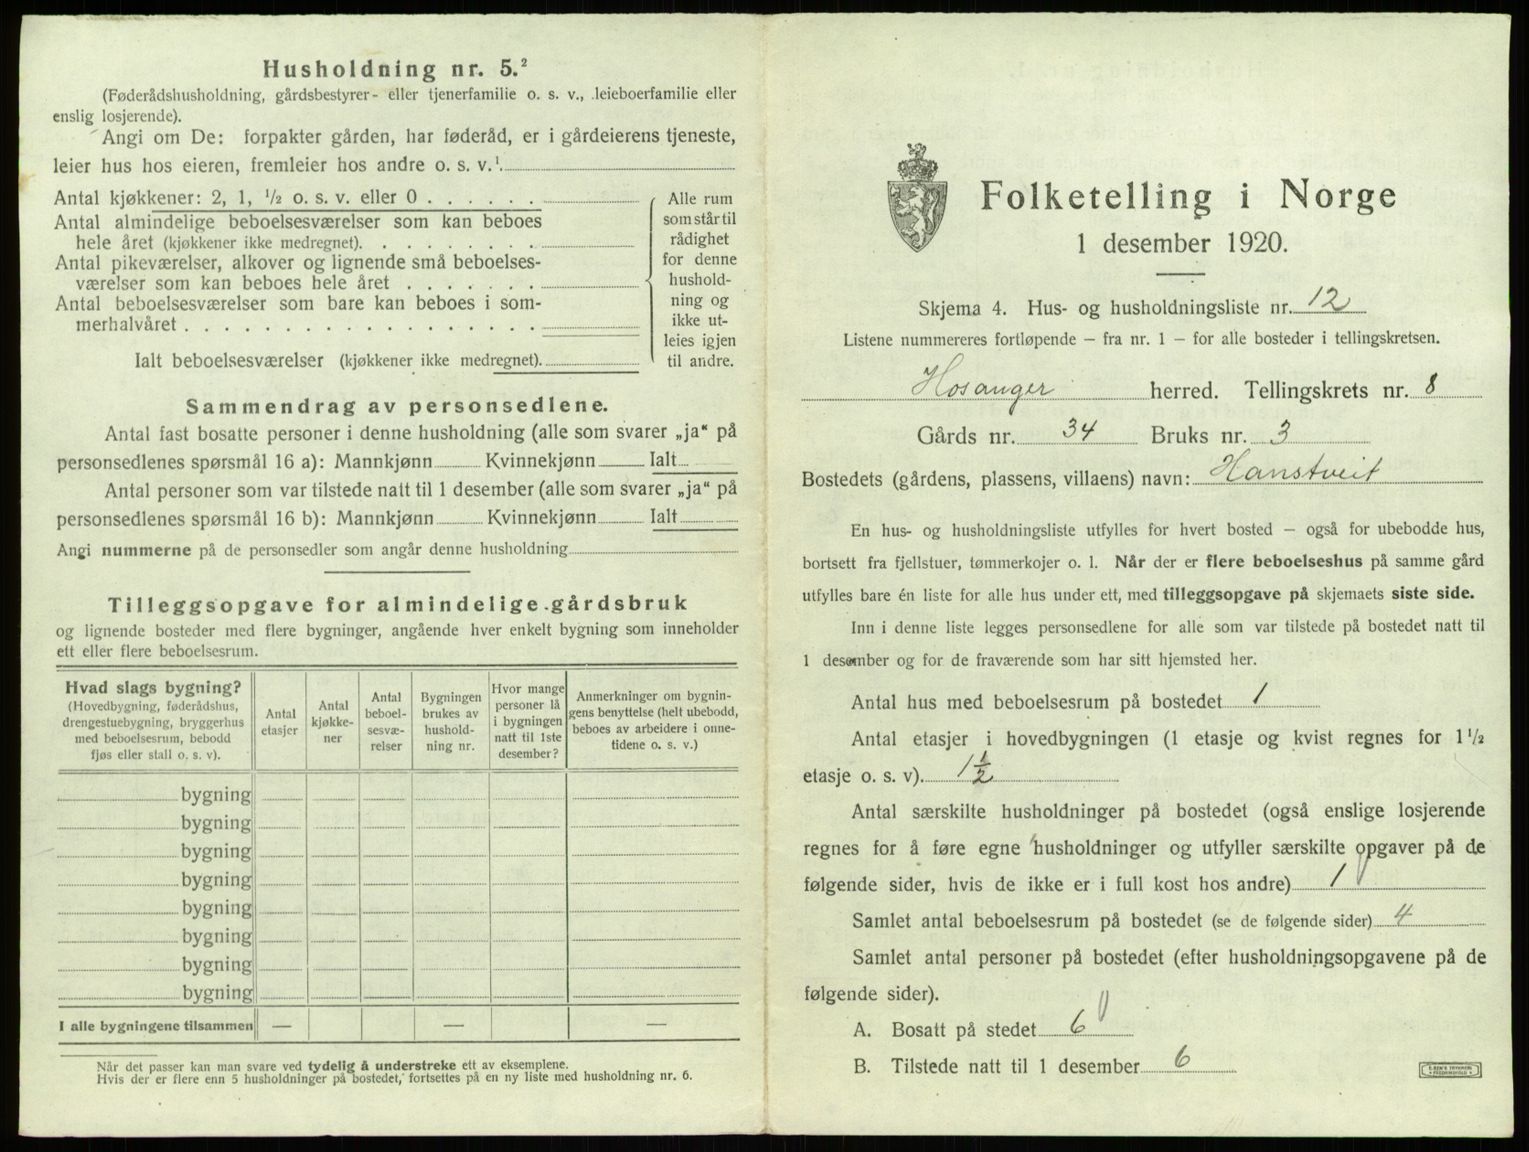 Husholdning nr. 5.²
(Føderådshusholdning, gårdsbestyrer- eller tjenerfamilie o. s. v., leieboerfamilie eller
enslig losjerende).
Angi om De: forpakter gården, har føderåd, er i gårdeierens tjeneste,
leier hus hos eieren, fremleier hos andre o. s. v.¹
Antal kjøkkener: 2, 1, ½ o. s. v. eller 0
Antal almindelige beboelsesværelser som kan beboes
hele året (kjøkkener ikke medregnet).
Antal pikeværelser, alkover og lignende små beboelses-
værelser som kan beboes hele året
Antal beboelsesværelser som bare kan beboes i som-
merhalvåret
Ialt beboelsesværelser (kjøkkener ikke medregnet).
Alle rum
som står til
rådighet
for denne
hushold-
ning og
ikke ut-
leies igjen
til andre.
Sammendrag av personsedlene.
Antal fast bosatte personer i denne husholdning (alle som svarer „ja“ på
personsedlenes spørsmål 16 a): Mannkjønn Kvinnekjønn Ialt
Antal personer som var tilstede natt til 1 desember (alle som svarer „ja“ på
personsedlenes spørsmål 16 b): Mannkjønn Kvinnekjønn Ialt
Angi nummerne på de personsedler som angår denne husholdning
Tilleggsopgave for almindelige gårdsbruk
og lignende bosteder med flere bygninger, angående hver enkelt bygning som inneholder
ett eller flere beboelsesrum.
Hvad slags bygning?
(Hovedbygning, føderådshus,
drengestuebygning, bryggerhus
med beboelsesrum, bebodd
fjøs eller stall o. s. v).
Antal
etasjer
Antal
kjøkke-
ner
Antal
beboel-
sesvæ-
relser
Bygningen
brukes av
hushold-
ning nr.
Hvor mange
personer lå
i bygningen
natt til 1ste
desember?
Anmerkninger om bygnin-
gens benyttelse (helt ubebodd,
beboes av arbeidere i onne-
tidene o. s. v.)
bygning
bygning
bygning
bygning
bygning
bygning
bygning
bygning
I alle bygningene tilsammen — — —
Når det passer kan man svare ved tydelig å understreke ett av eksemplene.
Hvis der er flere enn 5 husholdninger på bostedet, fortsettes på en ny liste med husholdning nr. 6.
Folketelling i Norge
1 desember 1920.
Skjema 4. Hus- og husholdningsliste nr. 12
Listene nummereres fortløpende – fra nr. 1 – for alle bosteder i tellingskretsen.
Hosanger herred. Tellingskrets nr. 8
Gårds nr. 34 Bruks nr. 3
Bostedets (gårdens, plassens, villaens) navn: Hanstveit
En hus- og husholdningsliste utfylles for hvert bosted – også for ubebodde hus,
bortsett fra fjellstuer, tømmerkojer o. l. Når der er flere beboelseshus på samme gård
utfylles bare én liste for alle hus under ett, med tilleggsopgave på skjemaets siste side.
Inn i denne liste legges personsedlene for alle som var tilstede på bostedet natt til
1 desember og for de fraværende som har sitt hjemsted her.
Antal hus med beboelsesrum på bostedet 1
Antal etasjer i hovedbygningen (1 etasje og kvist regnes for 1½
etasje o. s. v). 1½
Antal særskilte husholdninger på bostedet (også enslige losjerende
regnes for å føre egne husholdninger og utfyller særskilte opgaver på de
følgende sider, hvis de ikke er i full kost hos andre) 1
Samlet antal beboelsesrum på bostedet (se de følgende sider) 4
Samlet antal personer på bostedet (efter husholdningsopgavene på de
følgende sider).
A. Bosatt på stedet 6
B. Tilstede natt til 1 desember 6